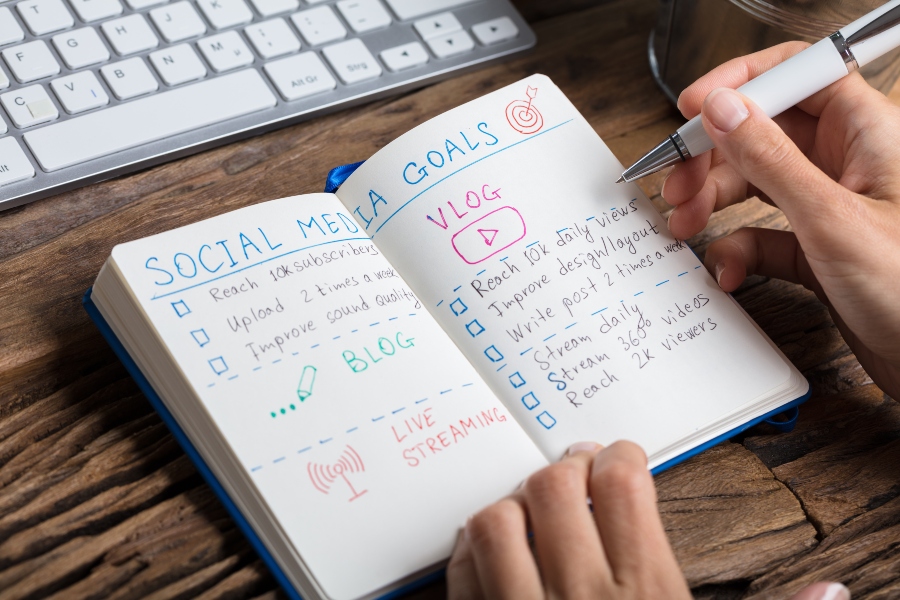 T
F G H J K
C V B N M
Alt Alt Gr Strg
SOCIAL MEDIA GOALS
Reach 10k subscribers
Upload 2 times a week
Improve sound quality
BLOG
LIVE
STREAMING
VLOG
Reach 10k daily views
Improve design/layout
Write post 2 times a week
Stream daily
Stream 360° videos
Reach 2k viewers